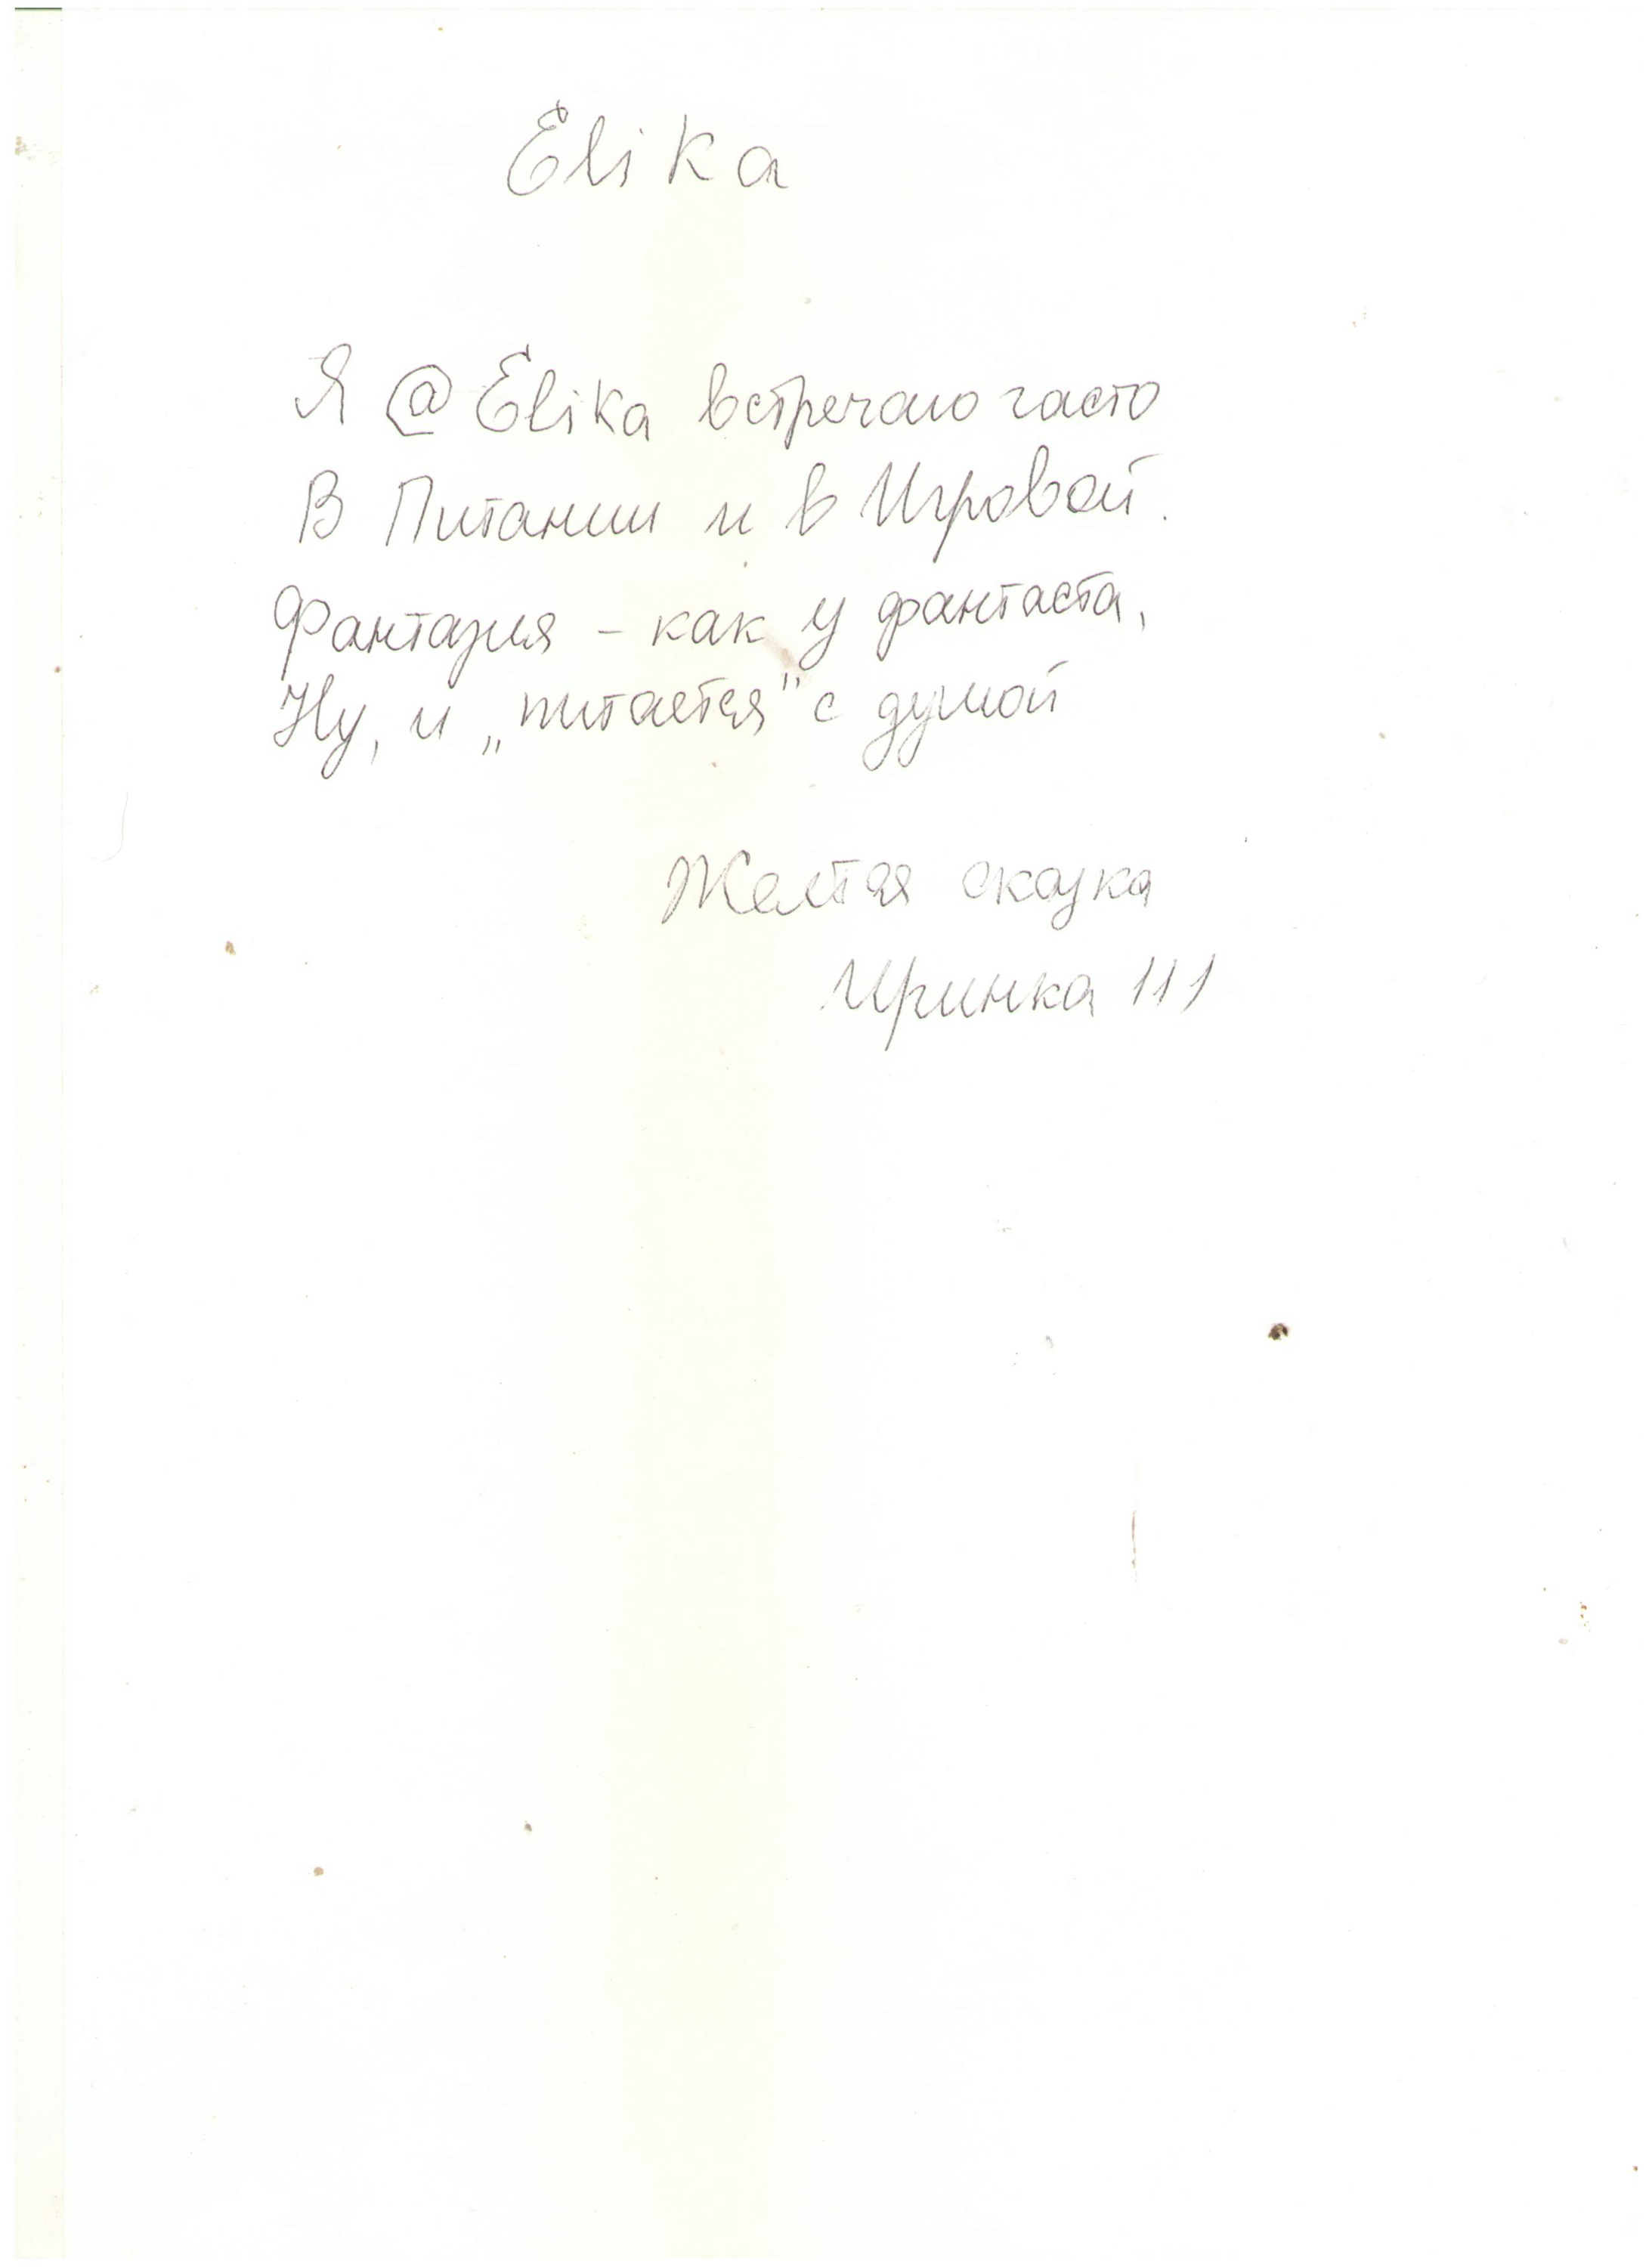 Elika
Я @Elika встречаю часто
В Питании и в Игровой.
Фантазия - как у фантаста,
Ну, и „питается" с думой
сказка
Иринка 111